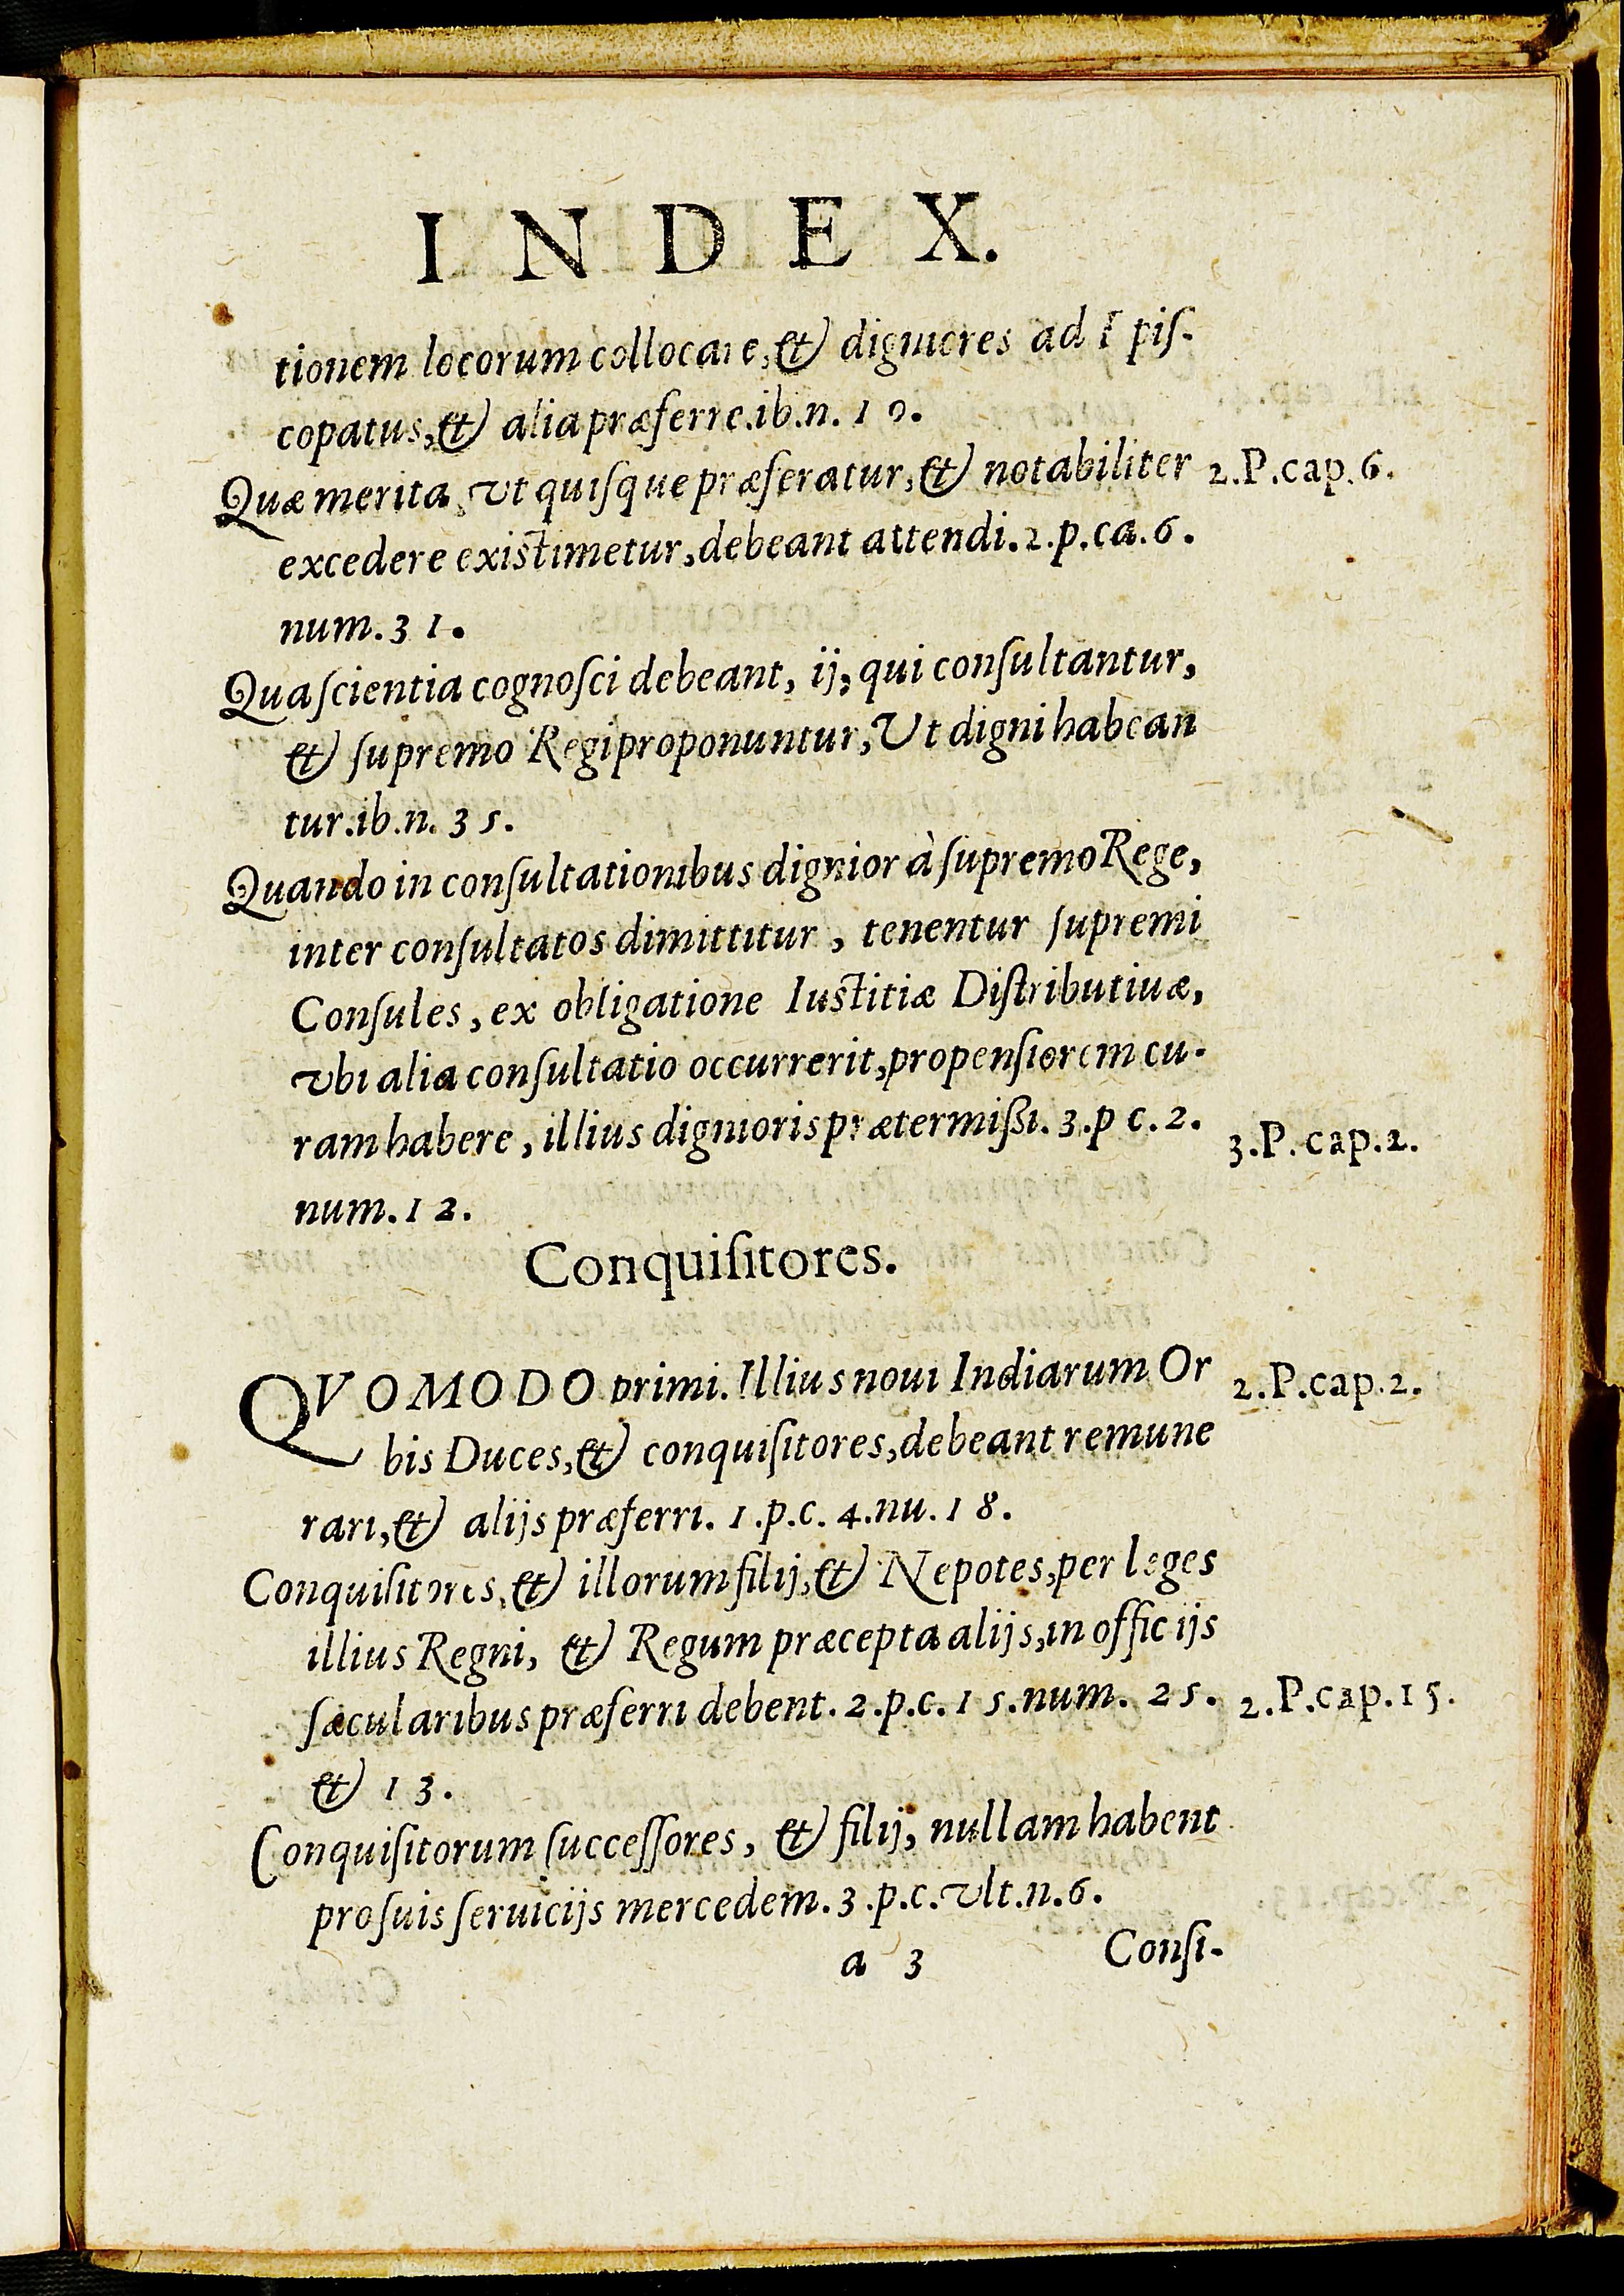 INDEX.
tionem locorum collocare, & digniores ad Epiſ-
copatus, & alia præferre.ib.n. 10.
Quæ merita, vt quiſque præferatur, & notabiliter 2.P.cap.6.
excedere existimetur, debeant attendi. 2.p.ca.6.
num. 31.
Qua ſcientia cognoſci debeant, ij, qui conſultantur,
& ſupremo Regi proponuntur, Vt digni habean
tur.ib.n. 35.
Quando in conſultationibus dignior à ſupremo Rege,
inter conſultatos dimittitur, tenentur ſupremi
Conſules, ex obligatione Iustitiæ Diſtributiuæ,
vbi alia conſultatio occurrerit, propenſiorem cu-
ram habere, illius dignioris prætermißi. 3.p c.2. 3.P.cap.2.
num. 12.
Conquiſitores.
QVOMODO primi. Illius noui Indiarum Or 2.P.cap.2.
bis Duces, & conquiſitores, debeant remune
rari, & alijs præferri. 1.p.c. 4.nu. 18.
Conquiſitores, & illorum filij, & Nepotes, per leges
illius Regni, & Regum præcepta alijs, in officijs
ſæcularibus præferri debent. 2.p.c. 15.num. 25. 2.P.cap.15.
& 13.
Conquiſitorum ſucceſſores, & filij, nullam habent
pro ſuis ſeruicijs mercedem. 3.p.c.vlt.n.6.
a 3 Conſi-